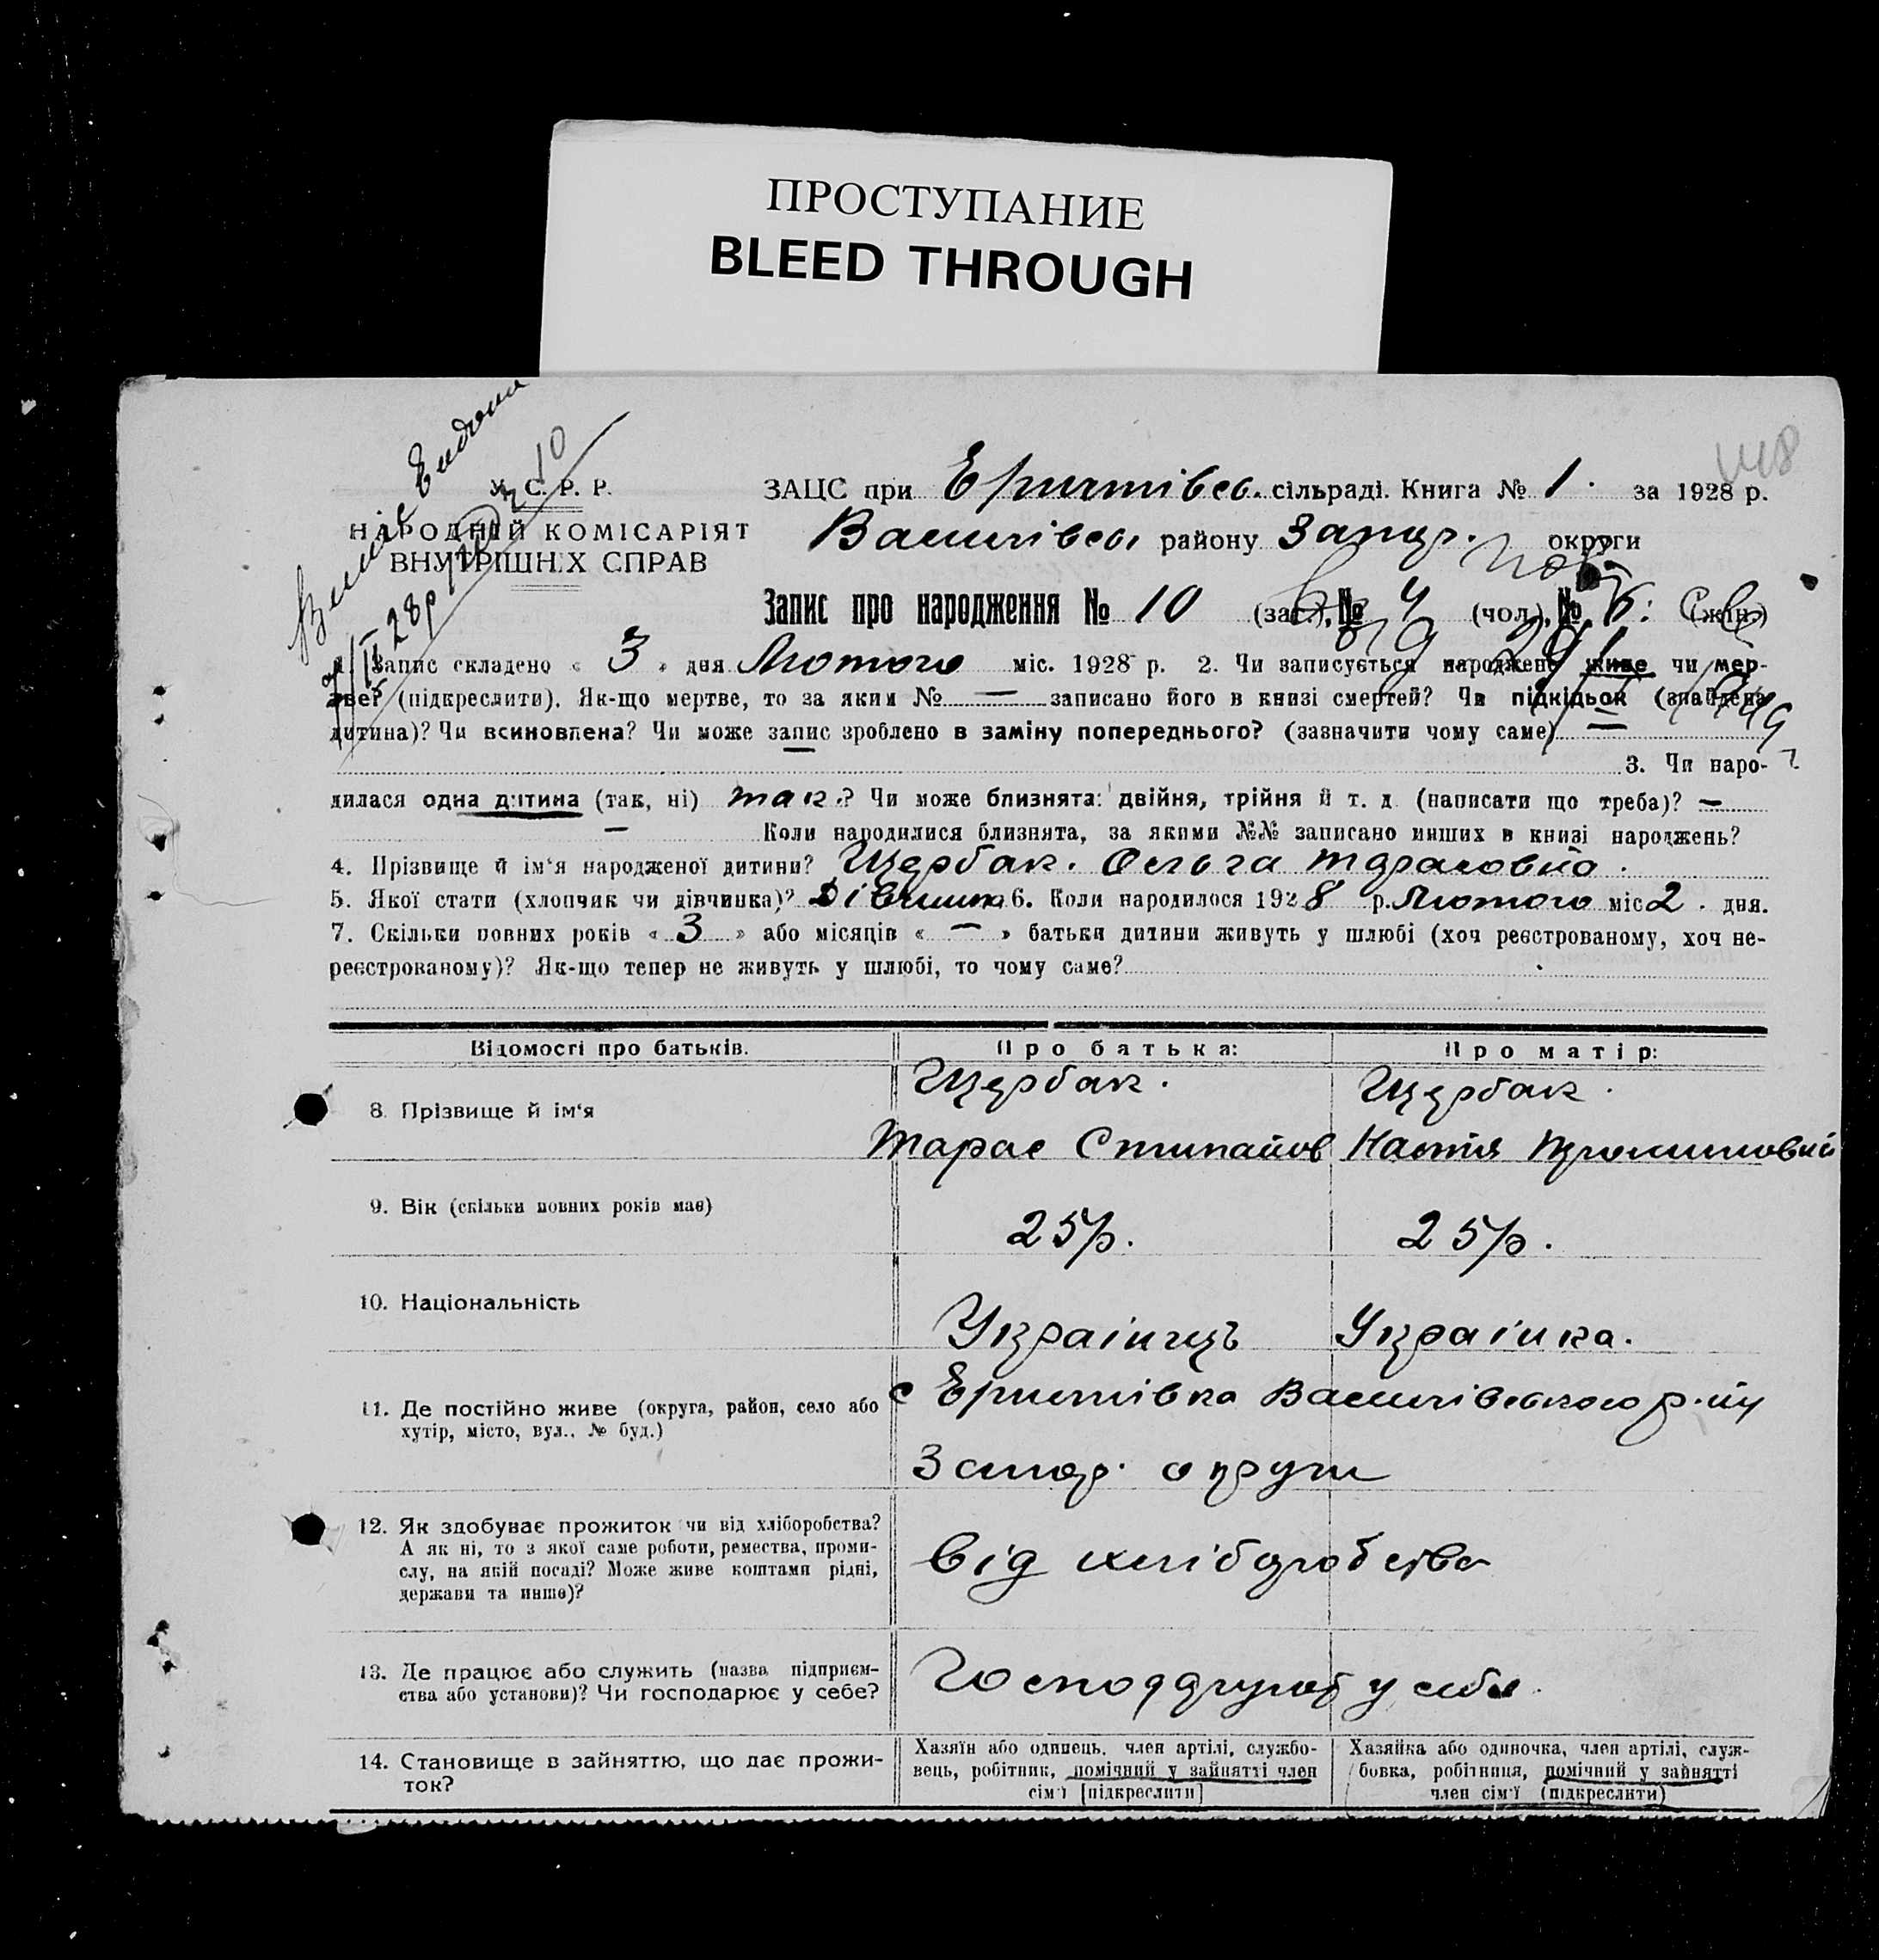 ПРОСТУПАНИЕ
BLEED THROUGH
148
У. С. Р. Р.
НАРОДНІЙ КОМІСАРІЯТ
ВНУТРІШНІХ СПРАВ
10
28р
ЗАЦС при сільраді. Книга № 1. за 1928 р.
Василівсь району Запор. округи
Запис про народження № 10 (заг.), № 4 (чол.), № 6: (жін.)
1. Запис складено « 3 » дня Лютого міс. 1928 р. 2. Чи записується народжене живе чи мер-
тве? (підкреслити). Як-що мертве, то за яким № — записано його в книзі смертей? Чи підкідьок (знайдена
дитина)? Чи всиновлена? Чи може запис зроблено в заміну попереднього? (зазначити чому саме) —
3. Чи наро-
дилася одна дитина (так, ні) так.? Чи може близнята: двійня, трійня й т. д. (написати що треба)? —
— Коли народилися близнята, за якими №№ записано инших в книзі народжень?
4. Прізвище й ім'я народженої дитини? Щербак. Ольга Тарасовна.
5. Якої стати (хлопчик чи дівчинка)? Дівчина 6. Коли народилося 1928 р. Лютого міс 2. дня.
7. Скільки повних років « 3 » або місяців « — » батьки дитини живуть у шлюбі (хоч реєстрованому, хоч не-
реєстрованому)? Як-що тепер не живуть у шлюбі, то чому саме?
Відомості про батьків. Про батька: Про матір:
8. Прізвище й ім'я Щербак. Щербак.
Тарас Настя
9. Вік (скільки повних років має) 25р. 25р.
10. Національність Українць Українка.
11. Де постійно живе (округа, район, село або
хутір, місто, вул., № буд.)
с Василівського р-ну
Запор. округи
12. Як здобуває прожиток чи від хліборобства?
А як ні, то з якої саме роботи, ремества, проми-
слу, на якій посаді? Може живе коштами рідні,
держави та инше)?
від хліборобства
13. Де працює або служить (назва підприєм-
ства або установи)? Чи господарює у себе?
у себе.
14. Становище в зайняттю, що дає прожи-
ток?
Хазяїн або одинець, член артілі, службо-
вець, робітник, помічний у зайнятті член
сім'ї [підкреслити]
Хазяйка або одиночка, член артілі, служ-
бовка, робітниця, помічний у зайнятті
член сім'ї (підкреслити)